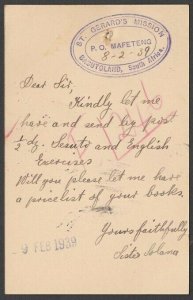 ST. GERARD'S MISSION
P. O. MAFETENG
8-2-39
BASUTOLAND, South Africa.
Dear Sir,
Kindly let me
have and send by post
½ dz. Scouts and English
Exercises
Will you please let me have
a pricelist of your books.
Yours faithfully
Sister Solana
9 FEB 1939